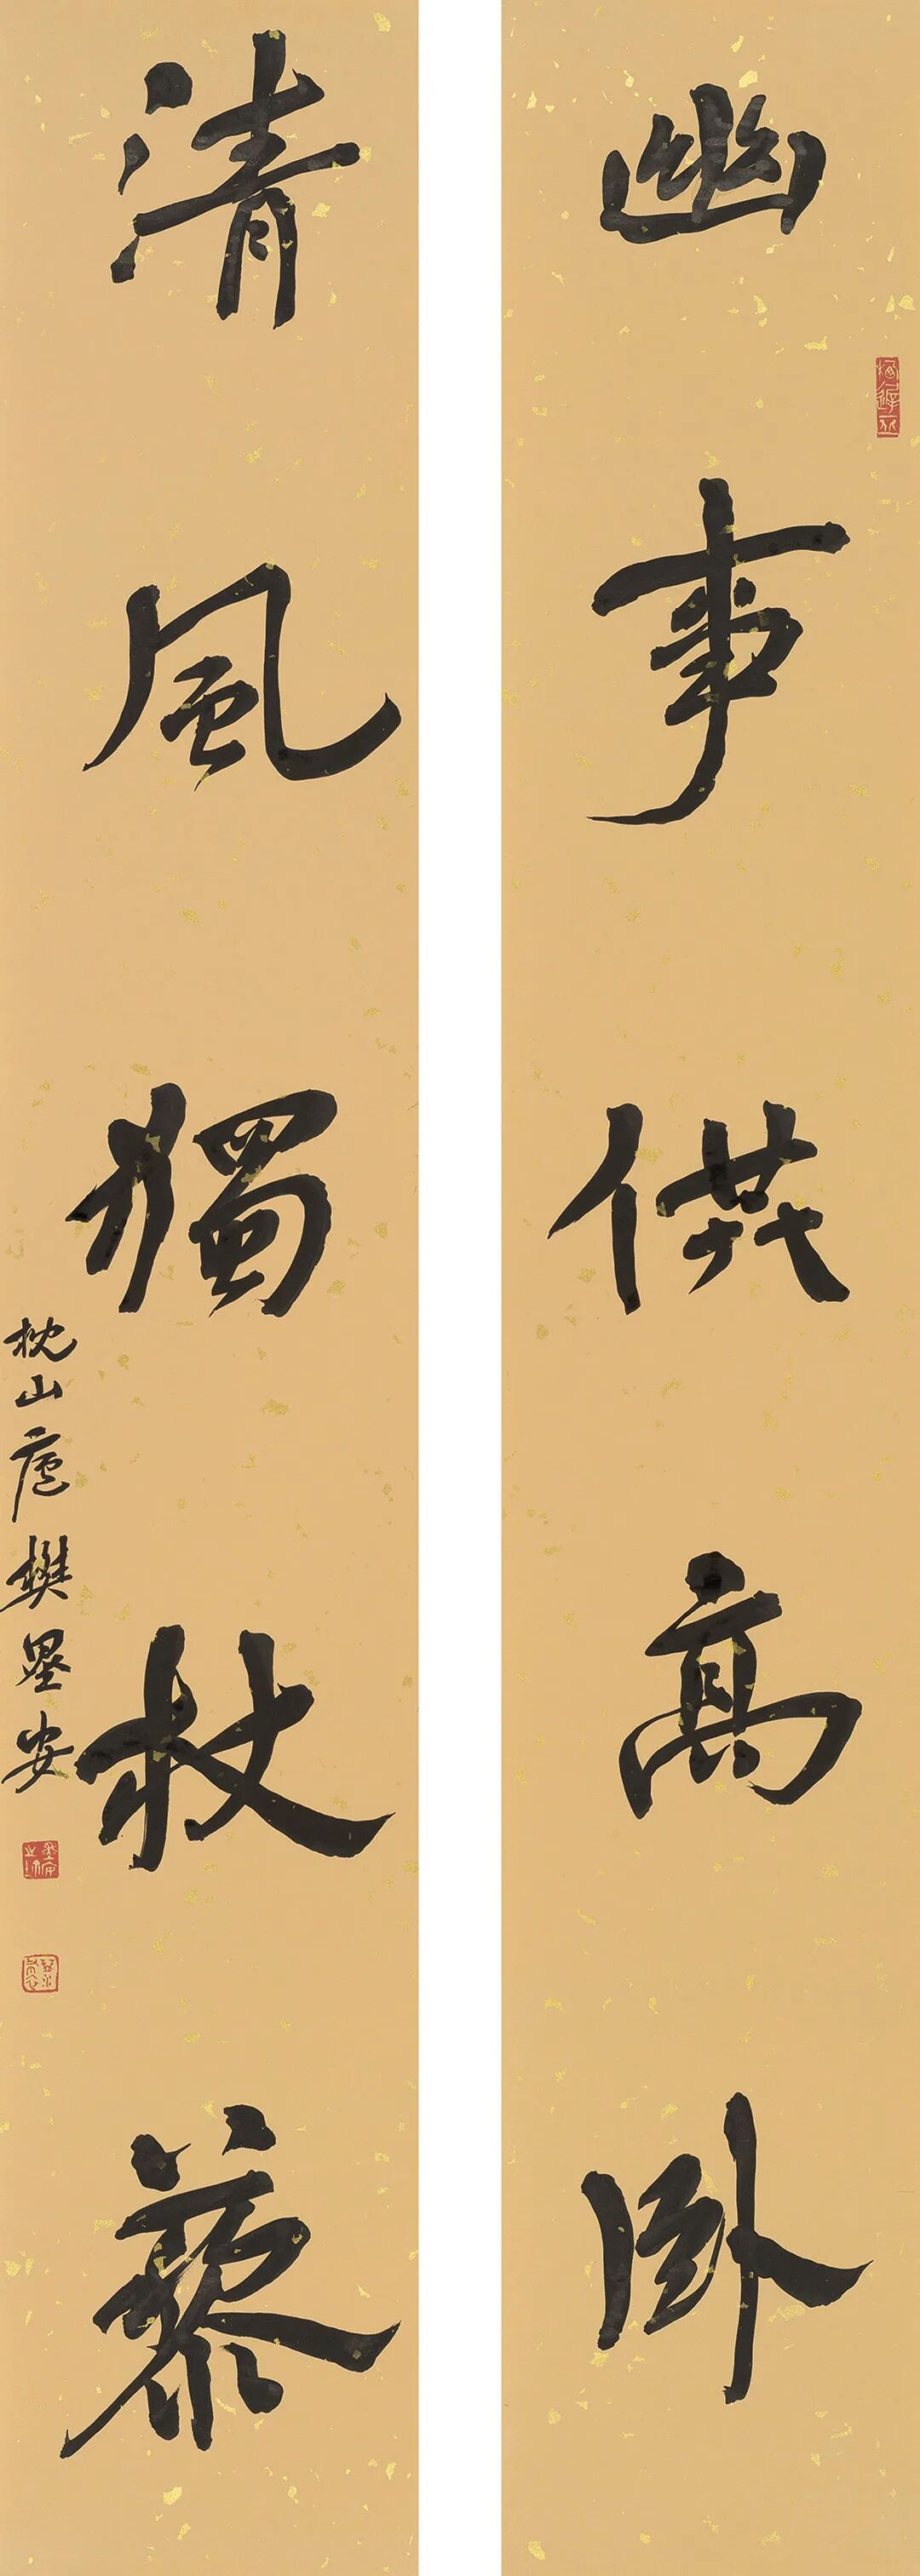 幽事供高卧
清風獨杖藜
枕山廬樊墨安